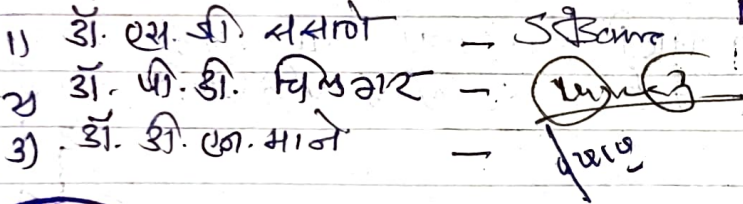 १) डॉ. एस. जी. ससाणे -
२) डॉ. पी. डी. चिलगर -
३) डॉ. डी. एन. माने -